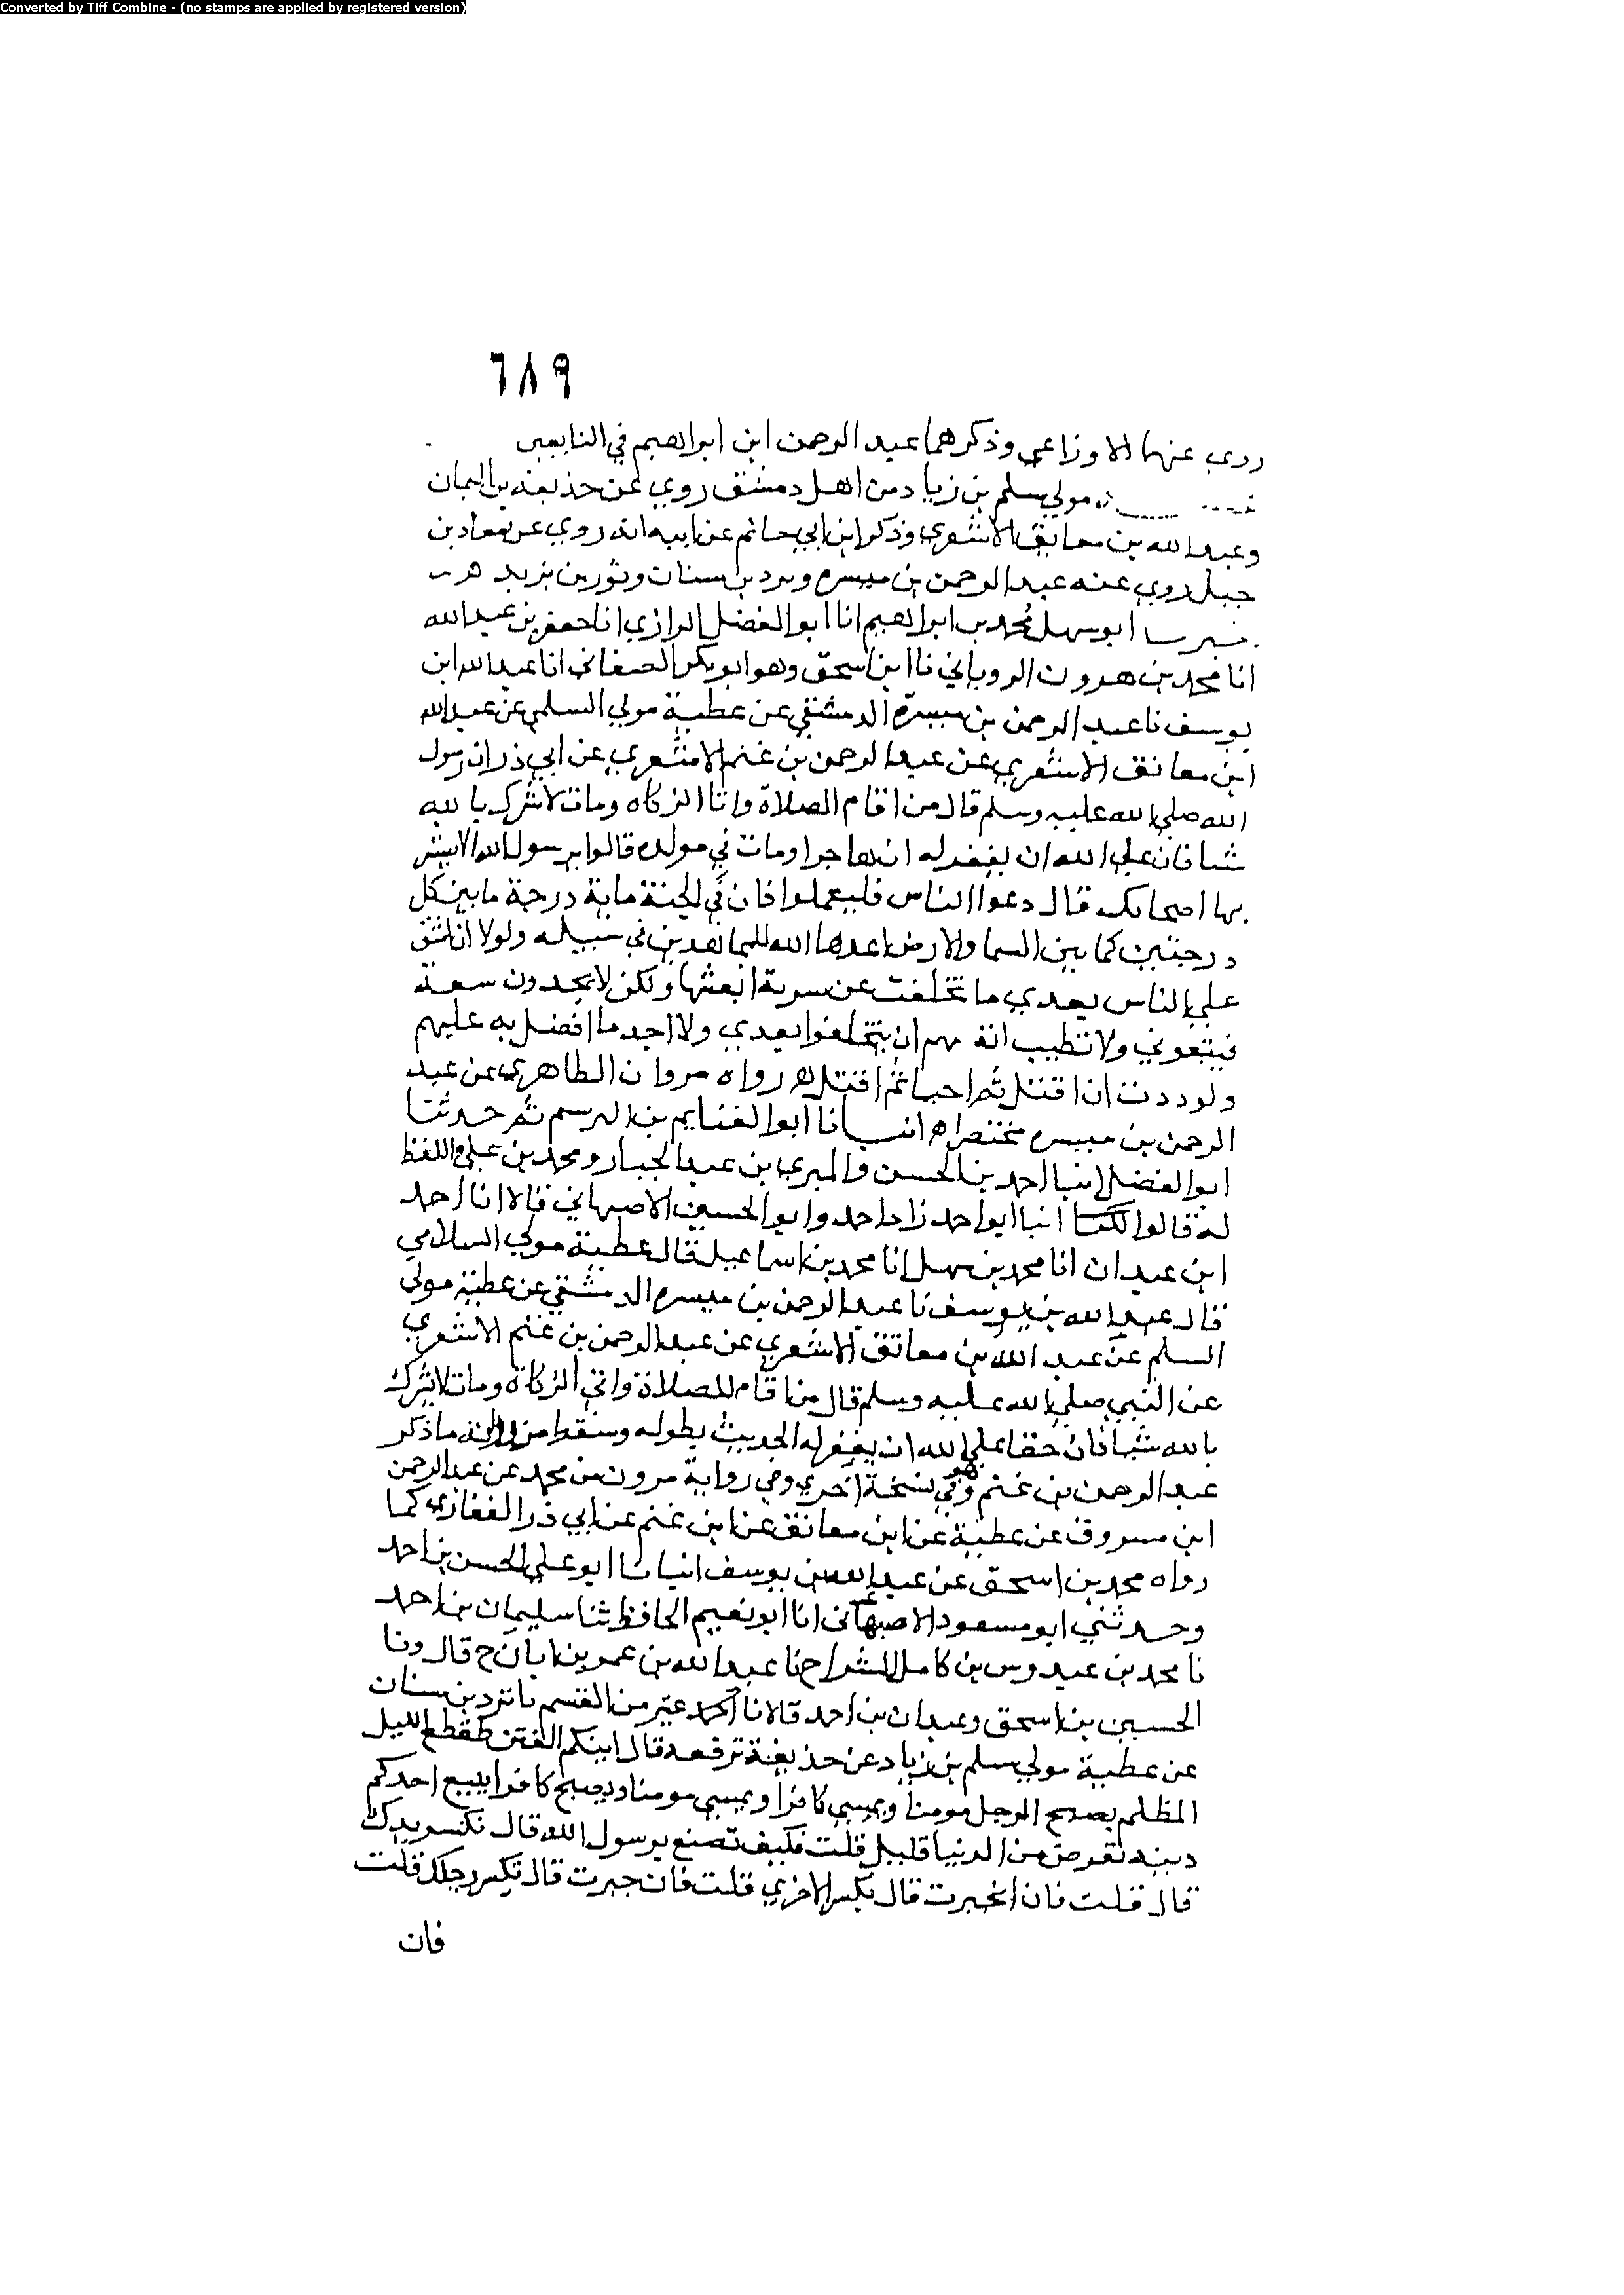 Converted by Tiff Combine - (no stamps are applied by registered version)
٦٨٩
روى عنهما الاوزاعي وذكرهما عبد الرحمن ابن ابراهيم في التابعين
مولي سلم بن زياد من اهل دمشق روي عن حذيفة بن اليمان
وعبد الله بن معانق الاشعري وذكر ابن ابي حاتم عن ابيه انه روي عن معاذ بن
جبل روي عنه عبد الرحمن بن ميسره وبرد بن سنان وثور بن يزيد
ابو سهل محمد بن ابراهيم انا ابو الفضل الرازي انا جعفر بن عبد الله
انا محمد بن هرون الروياني نا ابن اسحق وهو ابو بكر الصغاني انا عبد الله ابن
يوسف نا عبد الرحمن بن ميسرة الدمشقي عن عطية مولي السلم عن عبد الله
ابن معانق الاشعري عن عبد الرحمن بن غنم الاشعري عن ابي ذر ان رسول
الله صلي الله عليه وسلم قال من اقام الصلاة واتا الزكاه ومات لا يشرك بالله
شيا فان علي الله ان يغفر له ان هاجر او مات في مولده قالوا يرسول الله الا نبشر
بها اصحابك قال دعوا الناس فليعملوا فان في الجنة ماية درجة ما بين كل
درجتين كما بين السما والارض اعدها الله للمجاهدين في سبيله ولولا ان اشق
علي الناس بعدي ما تخلفت عن سرية ابعثها ولكن لا يجدون سعة
فيتبعوني ولا تطيب انفسهم ان يتخلفوا بعدي ولا اجد ما افضل به عليهم
ولوددت ان اقتل ثم احيا ثم اقتل ه رواه مروان الطاهري عن عبد
الرحمن بن ميسره مختصرا ه انبــانا ابو الغنايم بن الرسم ثم حدثنا
ابو الفضل انبا احمد بن الحسن والمبرك بن عبد الجبار ومحمد بن علي واللفظ
له قالوا انبا ابو احمد زاد احمد وابو الحسين الاصبهاني قالا انا احمد
ابن عبدان انا محمد بن سهل انا محمد بن اسماعيل قال عطية مولي السلامي
قال عبد الله بن يوسف نا عبد الرحمن بن ميسره الدمشقي عن عطية مولي
السلم عن عبد الله بن معانق الاشعري عن عبد الرحمن بن غنم الاشعري
عن النبي صلي الله عليه وسلم قال من اقام للصلاة واتي الزكاة ومات لا يشرك
بالله شيا فان حقا علي الله ان يغفر له الحديث بطوله وسقط من ما ذكر
عبد الرحمن بن غنم وهو في نسخة اخري وفي رواية مرون بن محمد عن عبد الرحمن
ابن مسروق عن عطية عن ابن معانق عن ابن غنم عن ابي ذر الغفاري كما
رواه محمد بن اسحق عن عبد الله بن يوسف انبانا ابو علي الحسن بن احمد
وحدثني ابو مسعود الاصبهاني انا ابو نعيم الحافظ ثنا سليمان بن احمد
نا محمد بن عبدوس بن كامل السراج نا عبد الله بن عمر بن ابان ح قال ونا
الحسين بن اسحق وعبدان بن احمد قالا نا من القسم نا برد بن سنان
عن عطية مولي سلم بن زياد عن حذيفة ترفعه قال اتتكم الفتن كقطع الليل
المظلم يصبح الرجل مومنا ويمسي كافرا ويمسي مومنا ويصبح كافرا يبيع احدكم
دينه بعرض من الدنيا قليل قلت فكيف تصنع يرسول الله قال تكسر يدك
قال قلت فان انجبرت قال تكسر الاخري قلت فان جبرت قال تكسر رجلك قلت
فان